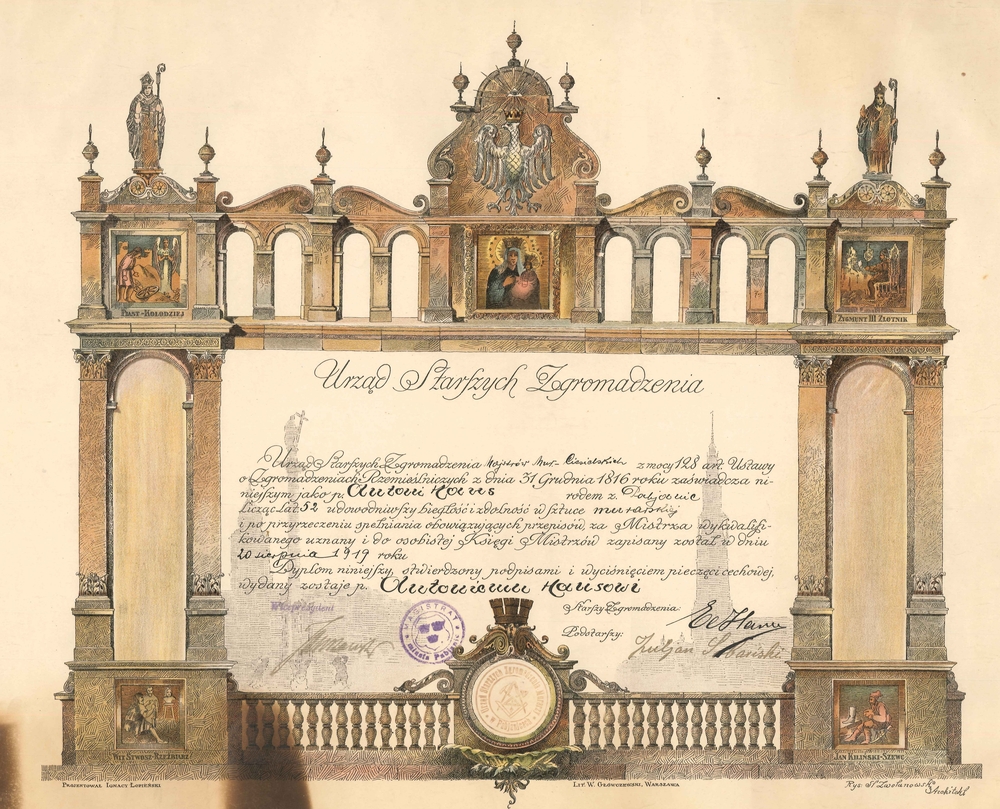 Piast-Kołodziej
Zygmunt III Złotnik
Urząd Starszych Zgromadzenia
Urząd Starszych Zgromadzenia Majstrów Mur.-Ciesielskich z mocy 128 art. Ustawy
o Zgromadzeniach Rzemieślniczych z dnia 31 Grudnia 1816 roku zaświadcza ni-
niejszym jako p. Antoni Haus rodem z
licząc lat 52 udowodniwszy biegłość i zdolność w sztuce murarskiej
i po przyrzeczeniu spełniania obowiązujących przepisów, za Mistrza wykwalifi-
kowanego uznany i do osobistej Księgi Mistrzów zapisany został w dniu
20 sierpnia 1919 roku
Dyplom niniejszy, stwierdzony podpisami i wyciśnięciem pieczęci cechowej,
wydany zostaje p. Antoniemu Hausowi
Starszy Zgromadzenia:
Podstarszy: Juljan
MAGISTRAT
miasta
Wit Stwosz-Rzeźbiarz
Jan Kiliński-Szewc
Prezentował Ignacy Łopieński
Lit. W. Główczewski, Warszawa
Rys.